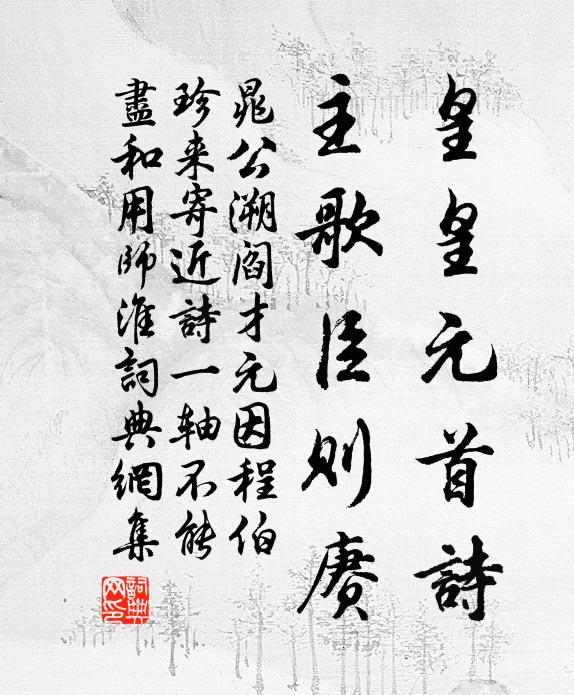 皇皇元首詩
主歌臣則賡
晁公溯閻才元因程伯
珍来寄近詩一軸不能
盡和用師淮詞典網集
詞典
网印